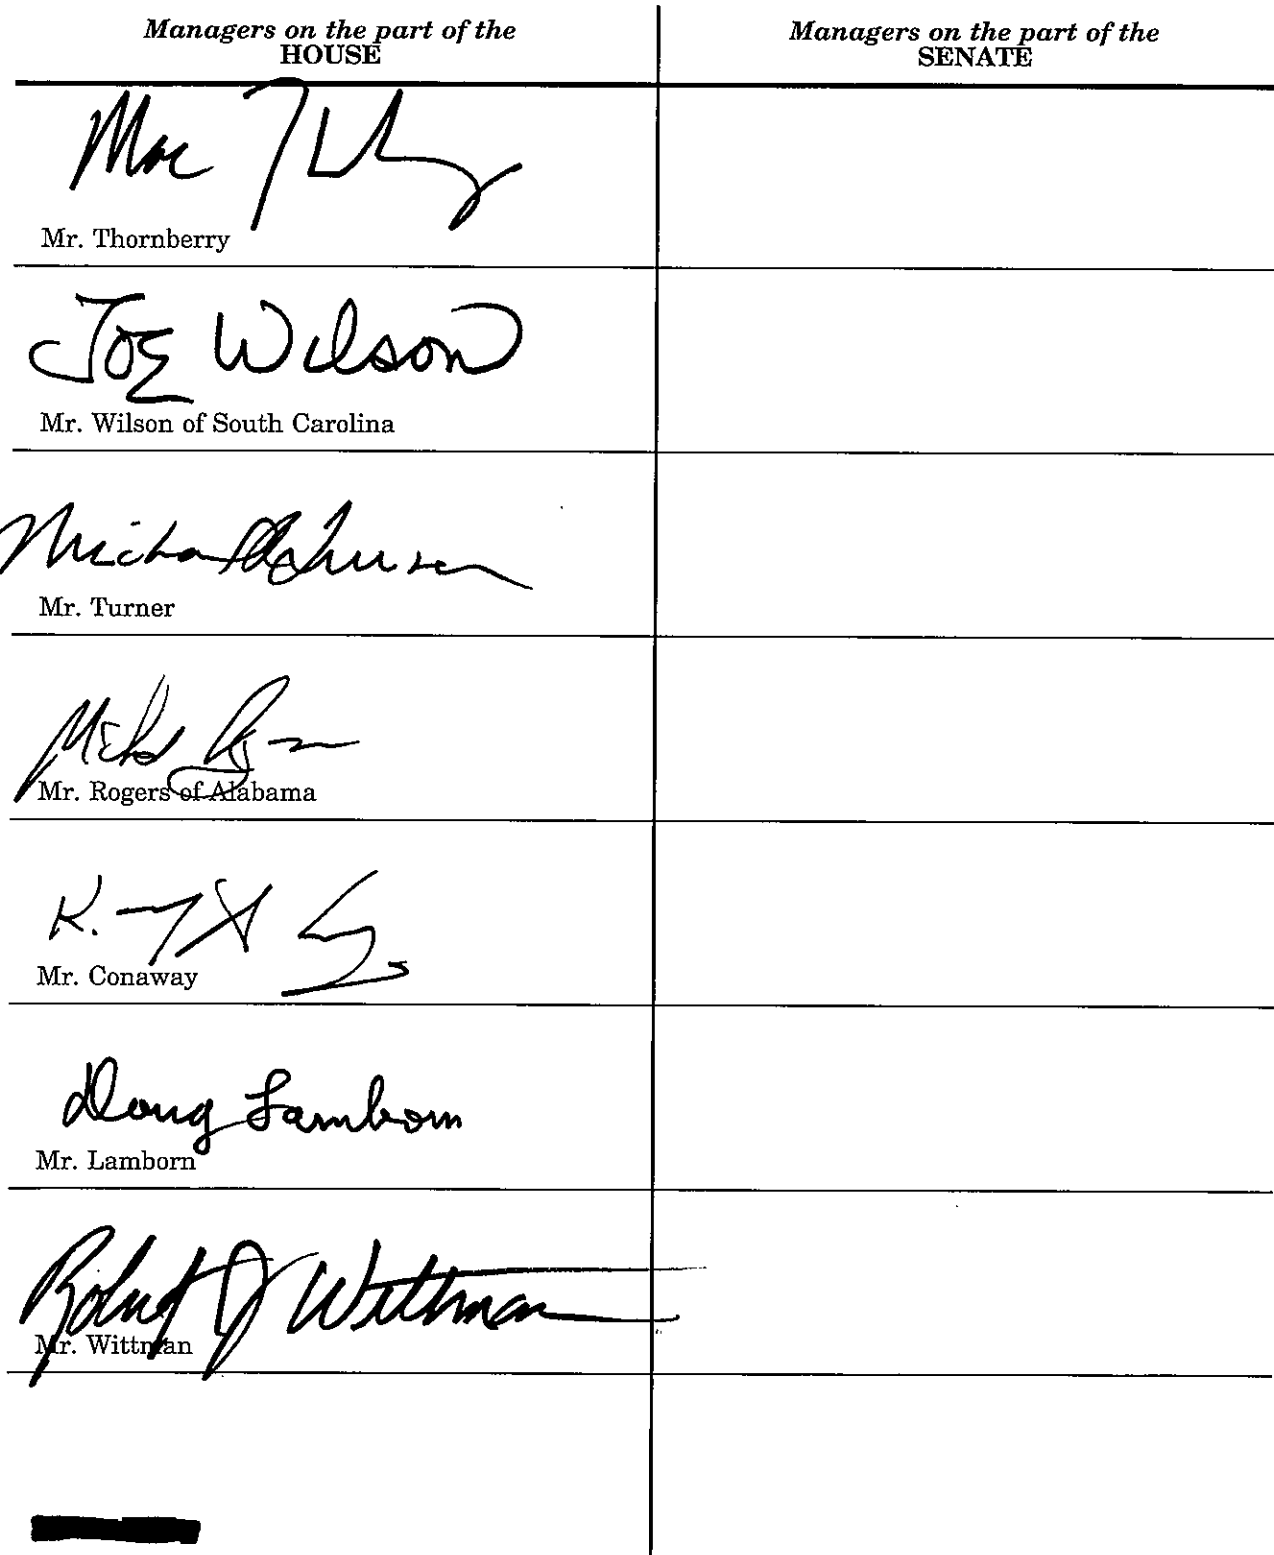 Managers on the part of the
HOUSE
Managers on the part of the
SENATE
Mac
Mr. Thornberry
Joe Wilson
Mr. Wilson of South Carolina
Michael R. Turner
Mr. Turner
Mike Rogers
Mr. Rogers of Alabama
K.
Mr. Conaway
Doug Lamborn
Mr. Lamborn
Robert J Wittman
Mr. Wittman